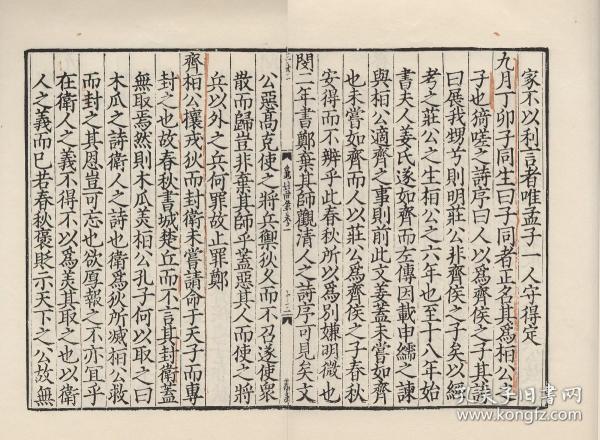 家不以利言者唯孟子一人守得定
九月丁卯子同生曰子同者正名其爲桓公之
子也猗嗟之詩序曰人以爲齊侯之子其詩
曰展我甥兮則明莊公非齊侯之子矣以經
考之莊公之生桓公之六年也至十八年始
書夫人姜氏遂如齊而左傳因載申繻之諫
與桓公適齊之事則前此文姜蓋未嘗如齊
也未嘗如齊而人以莊公爲齊侯之子春秋
安得而不辨乎此春秋所以爲別嫌明微也
閔二年書鄭棄其師觀清人之詩序可見矣文
公惡高克使之將兵禦狄久而不召遂使衆
散而歸豈非棄其師乎蓋惡其人而使之將
兵以外之兵何罪故止罪鄭
齊桓公攘戎狄而封衛未嘗請命于天子而專
封之也故春秋書城楚丘而不言其封衛蓋
無取焉然則木瓜美桓公孔子何以取之曰
木瓜之詩衛人之詩也衛爲狄所滅桓公救
而封之其恩豈可忘也欲厚報之不亦宜乎
在衛人之義不得不以爲美其取之也以衛
人之義而已若春秋褒貶示天下之公故無
孔夫子旧书网
www.kongfz.com